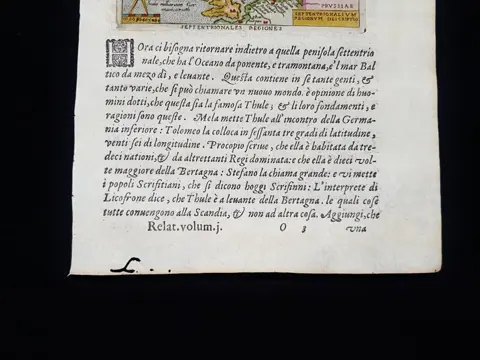 PRVSSIAE
SEPTENTRIONALIVM
REGIONVM DESCRIPTIO
SEPTENTRIONALES REGIONES
HOra ci bisogna ritornare indietro a quella penisola settentrio
nale, che ha l'Oceano da ponente, e tramontana, e'l mar Bal
tico da mezo dì, e leuante. Questa contiene in se tante genti, &
tanto varie, che si può chiamare vn nuouo mondo. è opinione di huo
mini dotti, che questa sia la famosa Thule; & li loro fondamenti, e
ragioni sono queste. Mela mette Thule all'incontro della Germa
nia inferiore: Tolomeo la colloca in sessanta tre gradi di latitudine,
venti sei di longitudine. Procopio scriue, che ella è habitata da tre-
deci nationi, & da altrettanti Regi dominata: e che ella è dieci vol-
te maggiore della Bertagna: Stefano la chiama grande: e vi mette
i popoli Scrifitiani, che si dicono hoggi Scrifinni: L'interprete di
Licofrone dice, che Thule è a leuante della Bertagna. le quali cose
tutte conuengono alla Scandia, & non ad altra cosa. Aggiungi, che
Relat. volum. j. O 3 vna